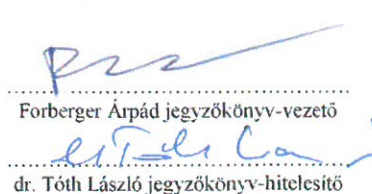 Forberger Árpád jegyzőkönyv-vezető
dr. Tóth László jegyzőkönyv-hitelesítő